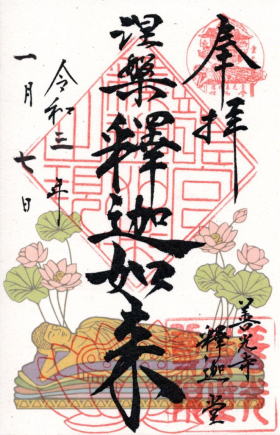 奉拝
涅槃釋迦如来
善光寺
釋迦堂
令和三年
一月七日